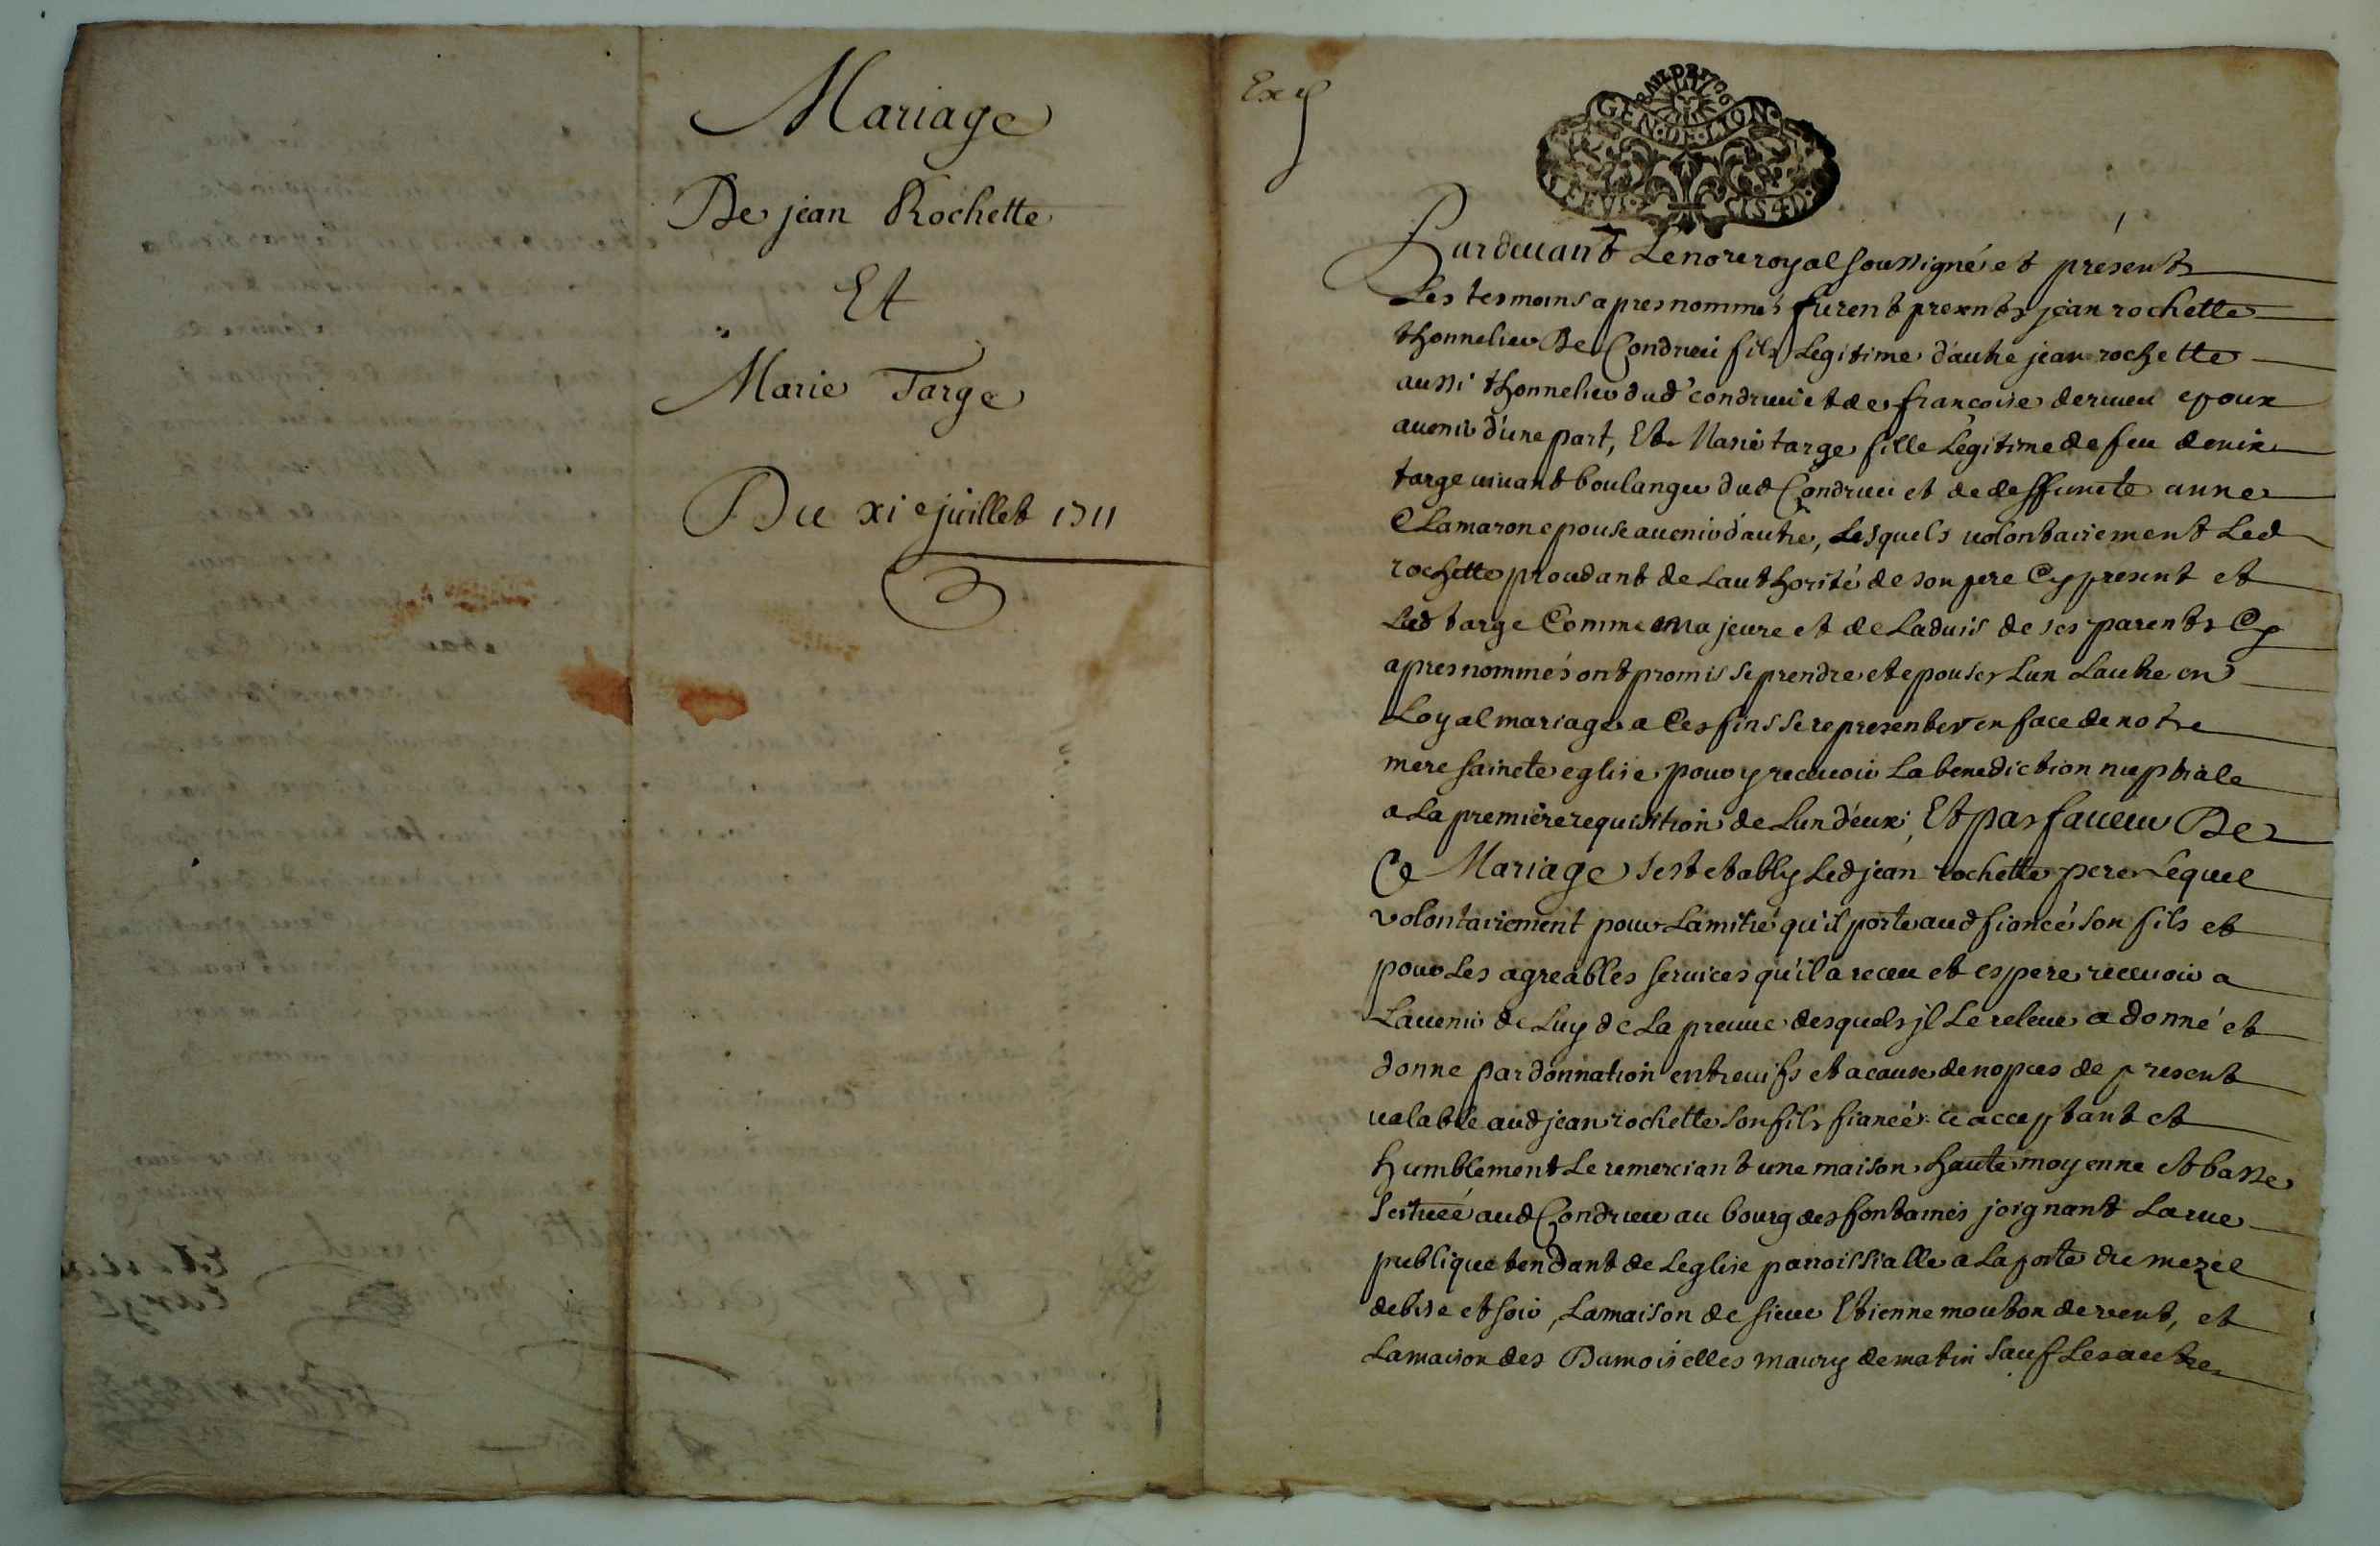 Mariage
De jean Rochette
Et
Marie Targe
Du xi e juillet 1711
GEN. DE. LION.
Pardeuant Le nore royal soussigné et présents
Les tesmoins apres nommés furent presents jean rochette
thonnelier De Condrieu fils Legitime d'autre jean rochette
aussi thonnelier dud condrieu et de françoise derieu epoux
auenir d'une part, Et Marie targe fille Legitime de feu denix
targe viuant boulanger dud Condrieu et de deffuncte anne
Clamaron epouse auenir d'autre, Lesquels volontairement Led
rochette procedant de Lauthorité de son pere Cy present et
Lad targe Comme majeure et de Laduis de ses parents Cy
apres nommés ont promis se prendre et epouser Lun Lautre en
Loyal mariage a Ces fins se representer en face de notre
mere saincte eglise pour y receuoir La benediction nuptiale
a La premiere requisition de Lun d'eux, Et par faueur De
Ce Mariage sest etably Led jean rochette pere Lequel
volontairement pour Lamitié qu'il porte aud fiancé son fils et
pour Les agreables seruices qu'il a receu et espere receuoir a
Lauenir de Luy de La preuue desquels jl Le releue a donné et
donne par donnation entre uifs et a cause de nopces de present
ualable aud jean rochette son fils fiancé ce acceptant et
humblement Le remerciant une maison haute moyenne et basse
scituée aud Condrieu au bourg des fontaines joignant La rue
publique tendant de Leglise parroissialle a La porte du mezel
de bise et soir, La maison de sieur Etienne mouton de vent, et
La maison des Damoiselles maury de matin sauf Les autres